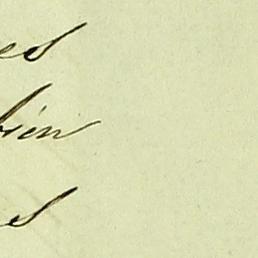 es
bien
es